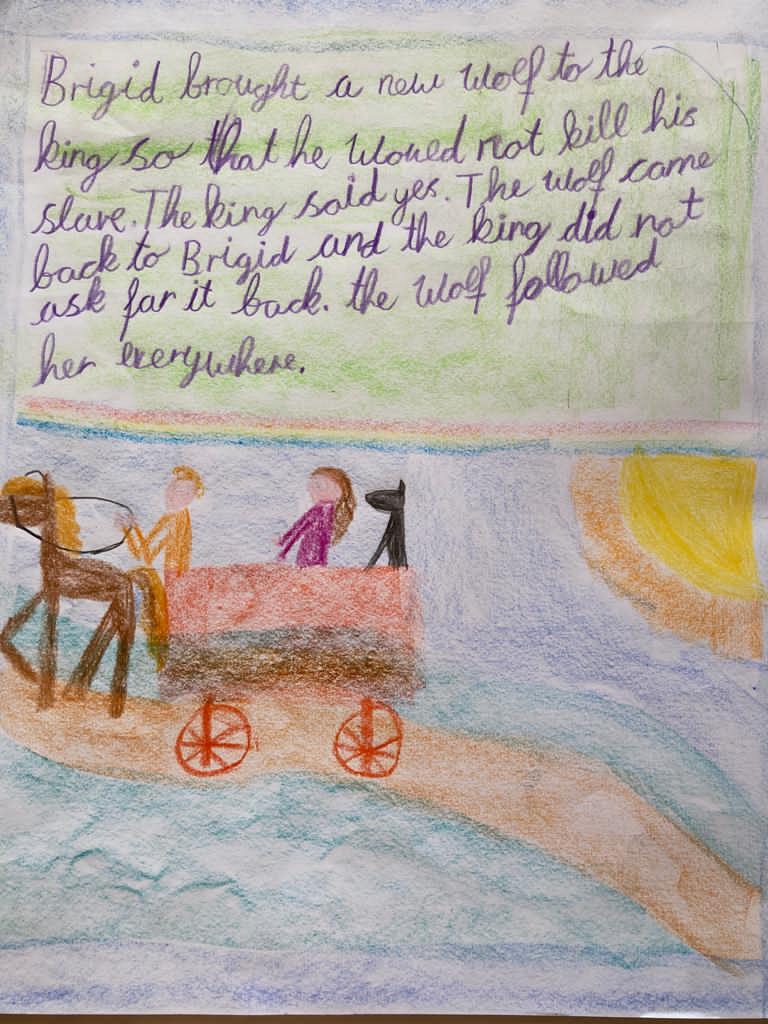 Brigid brought a new wolf to the
king so that he would not kill his
slave. The king said yes. The wolf came
back to Brigid and the king did not
ask for it back. the wolf followed
her everywhere.